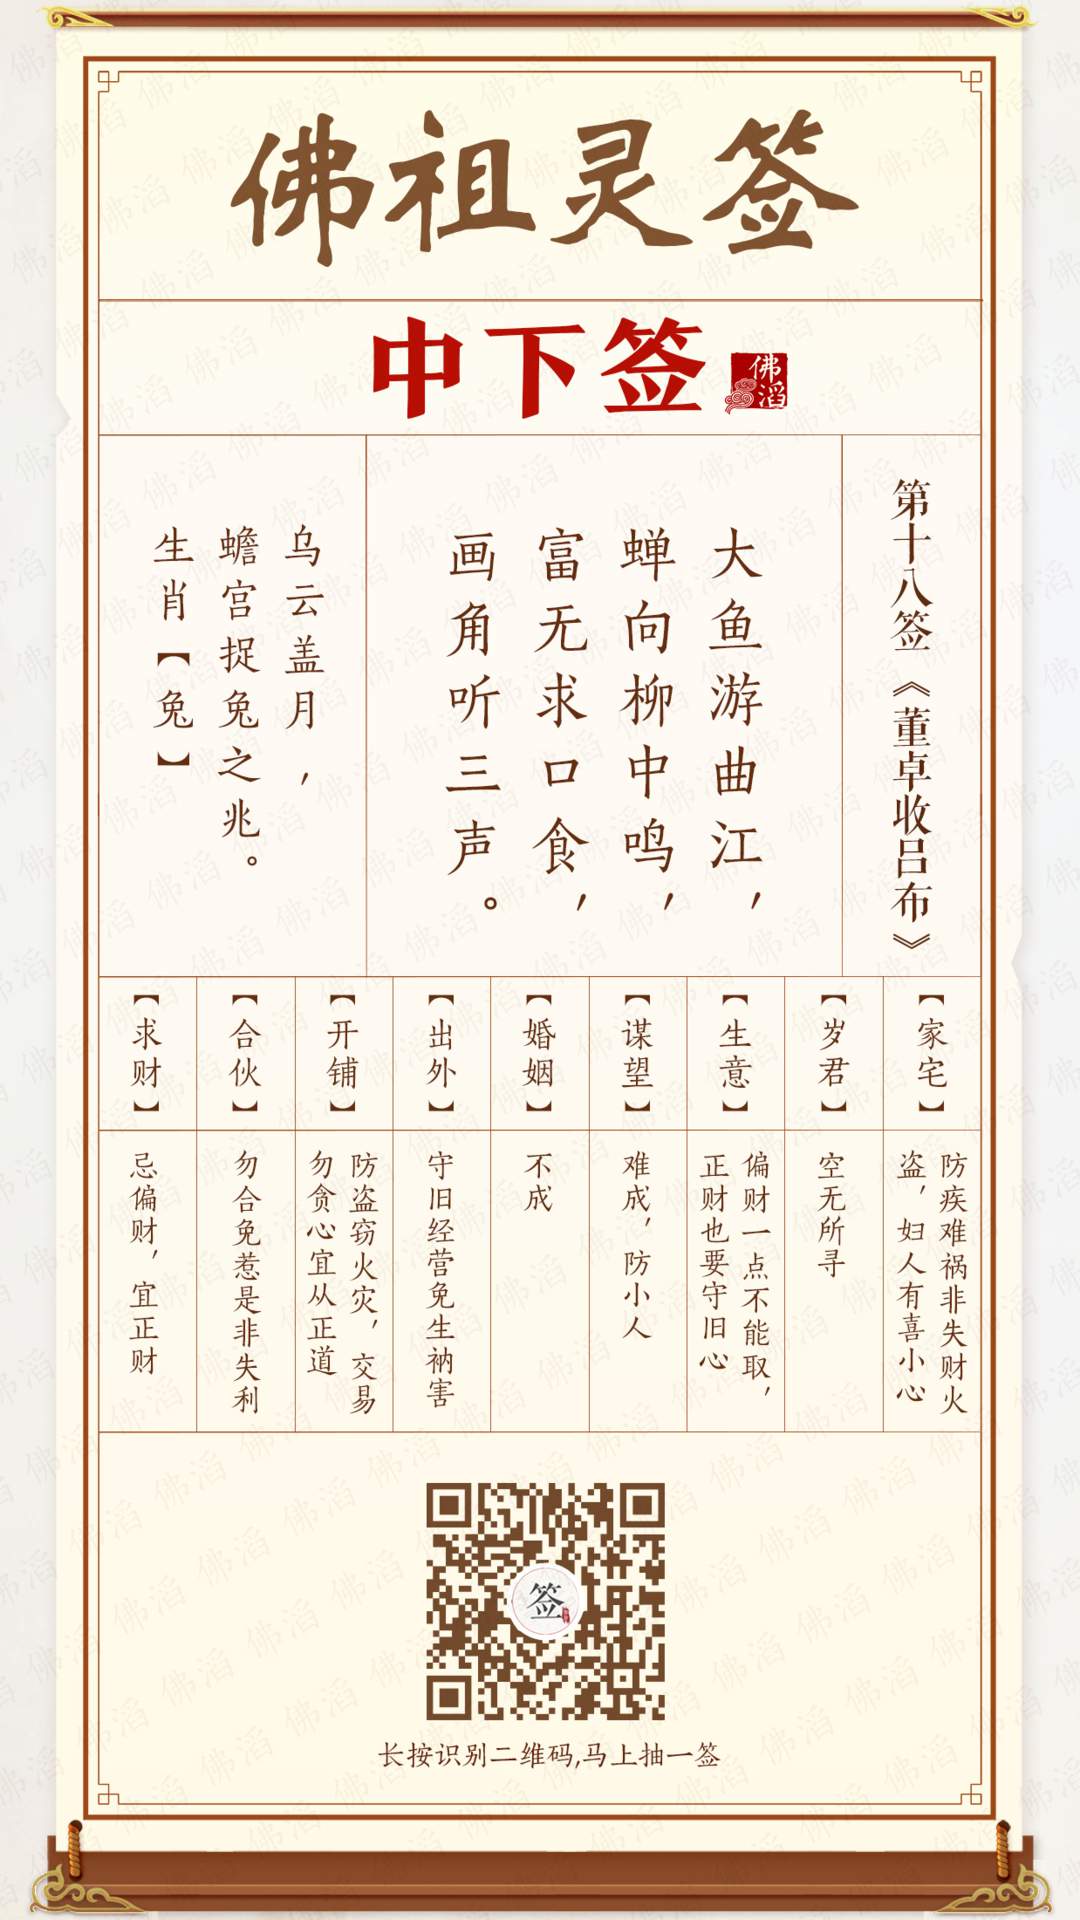 佛祖灵签
中下签
佛滔
第十八签《董卓收吕布》
大鱼游曲江，
蝉向柳中鸣，
富无求口食，
画角听三声。
乌云盖月，
蟾宫捉兔之兆。
生肖【兔】
【家宅】
防疾难祸非失财火
盗，妇人有喜小心
【岁君】
空无所寻
【生意】
偏财一点不能取，
正财也要守旧心
【谋望】
难成，防小人
【婚姻】
不成
【出外】
守旧经营免生祸害
【开铺】
防盗窃火灾，交易
勿贪心宜从正道
【合伙】
勿合免惹是非失利
【求财】
忌偏财，宜正财
签
长按识别二维码,马上抽一签